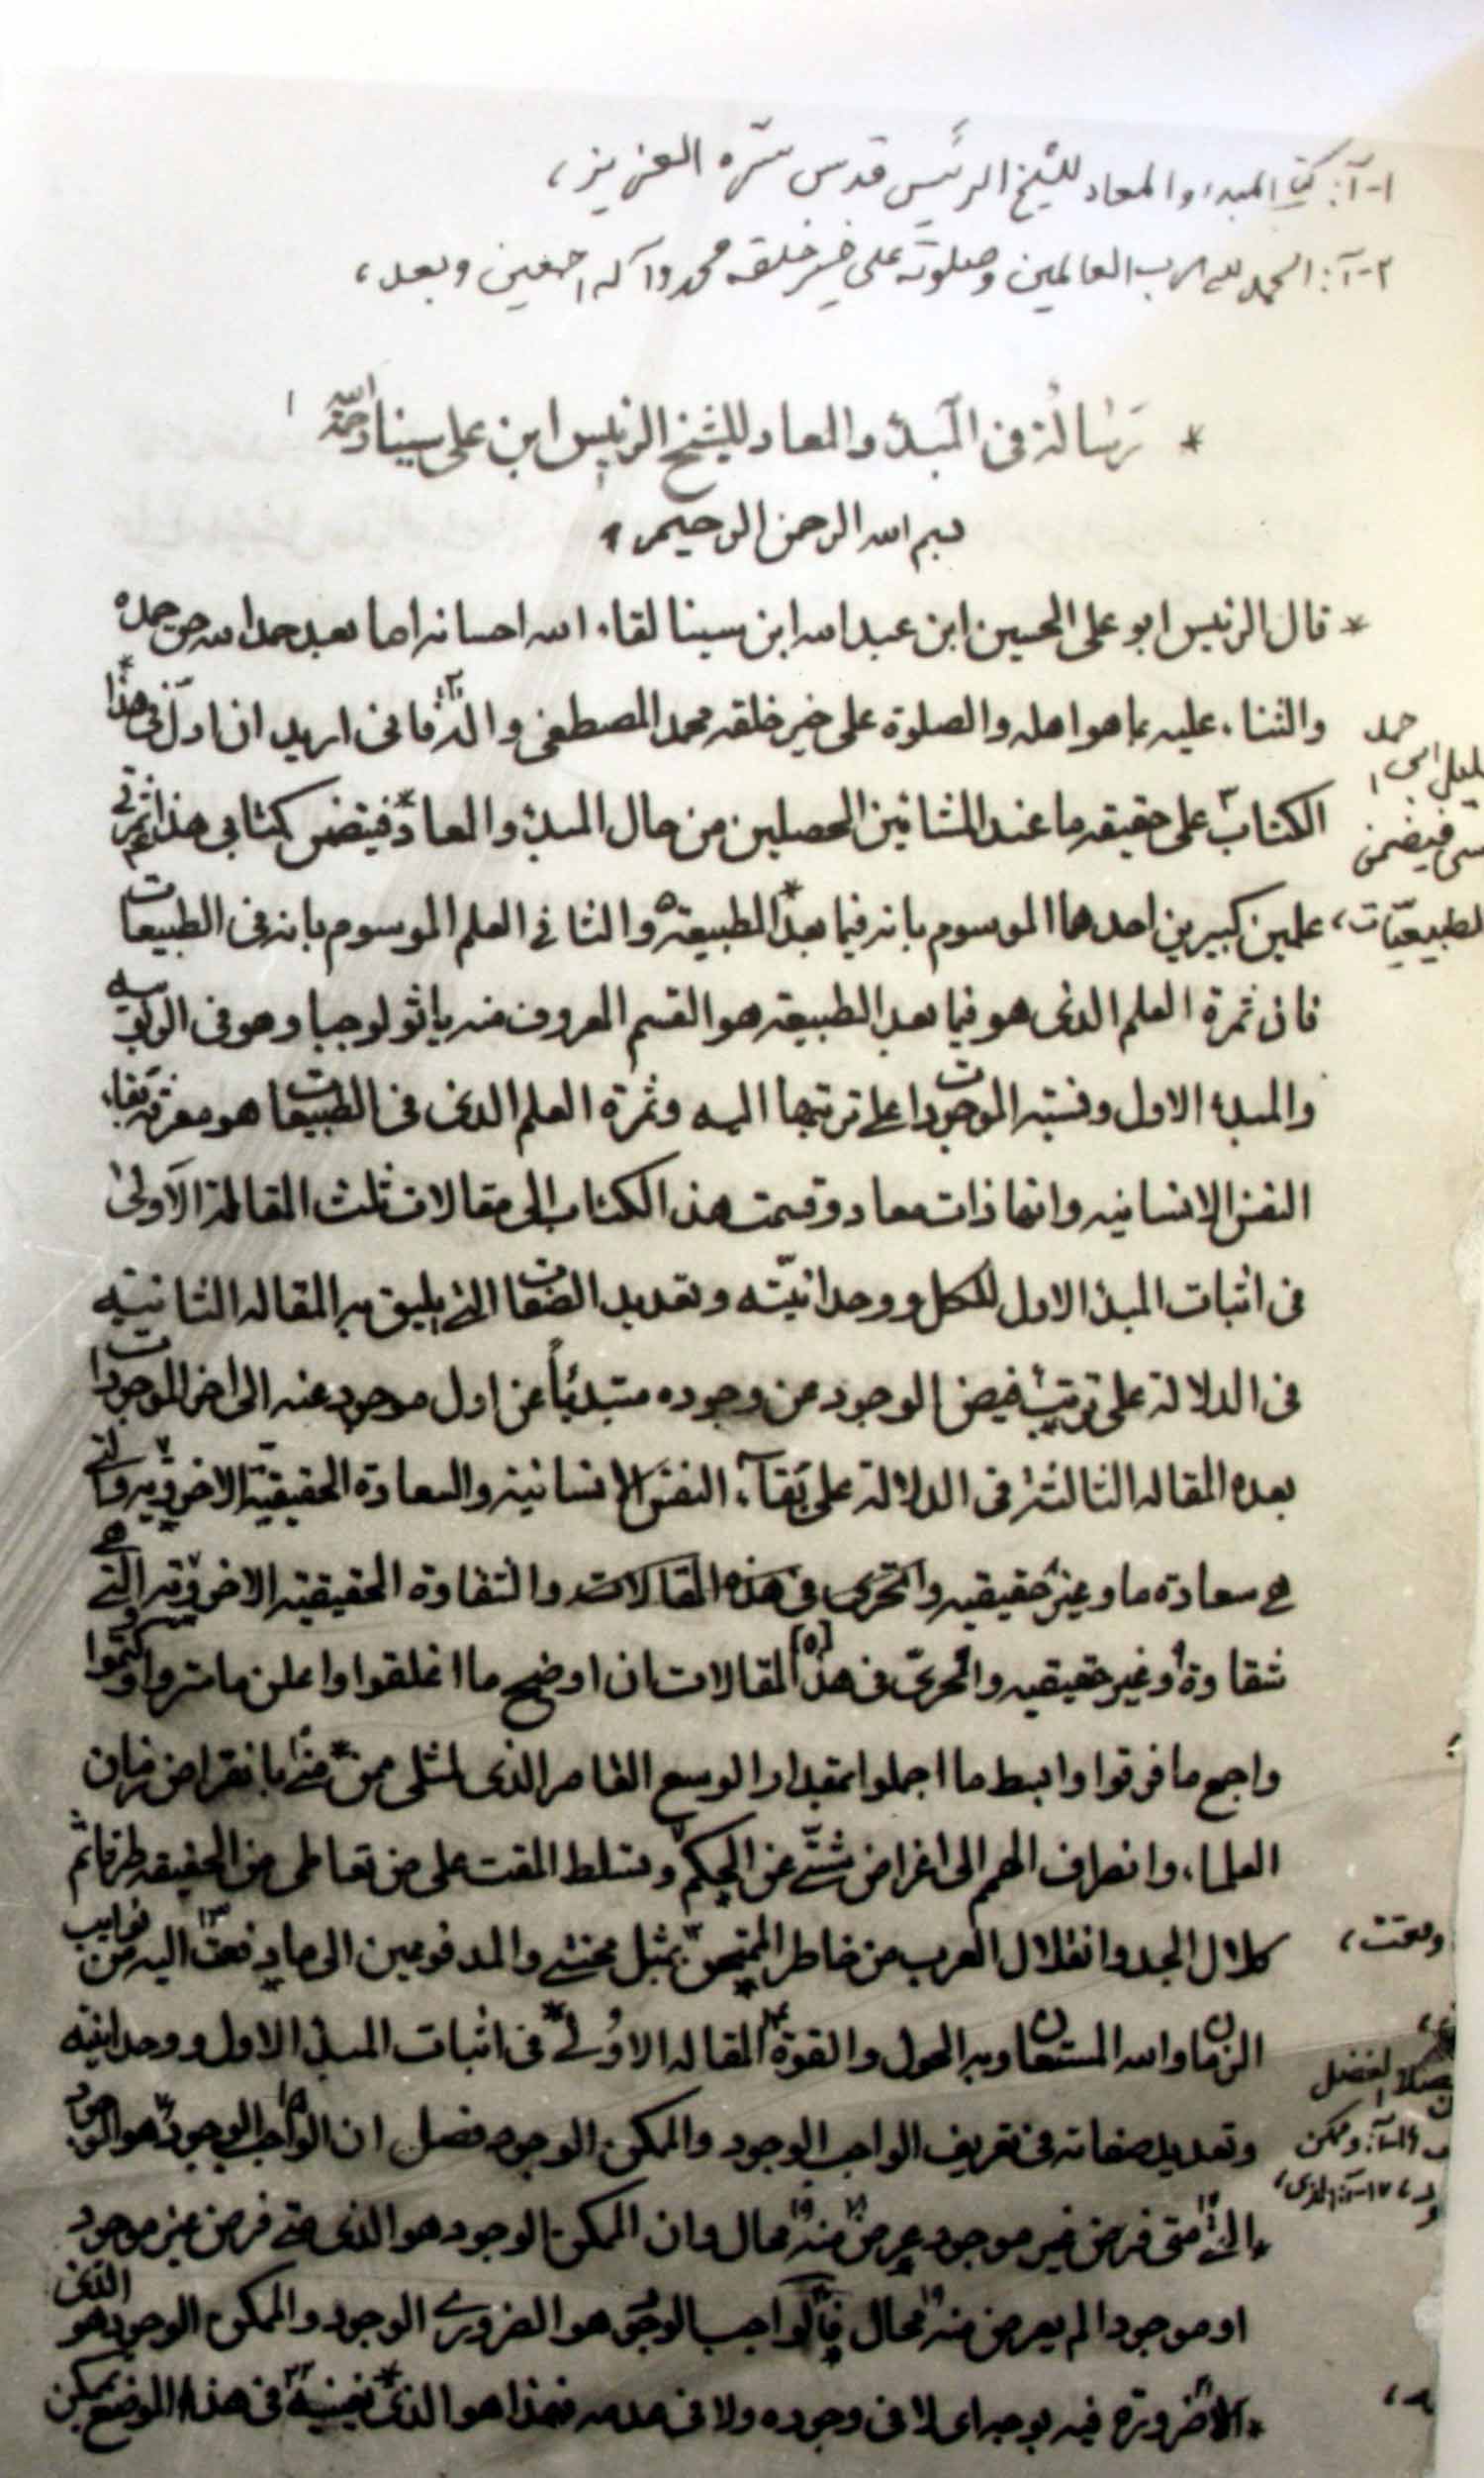 ١-آ: كتاب المبدء والمعاد للشيخ الرئيس قدس سره العزيز،
٢-آ: الحمد لله رب العالمين وصلوته على خير خلقه محمد وآله اجمعين وبعد،
* رسالة فى المبدء والمعاد للشيخ الرئيس ابن على سينا رحمه الله ١
بسم الله الرحمن الرحيم
* قال الرئيس ابو على الحسين ابن عبد الله ابن سينا لقاه الله احسانه اما بعد حمد الله حق حمده
والثناء عليه بما هو اهله والصلوة على خير خلقه محمد المصطفى واله ٢ فانى اريد ان ادل فى هذا
الكتاب على حقيقه ما عند المشائين المحصلين من حال المبدء والمعاد فيتضمن كتابى هذا ثمرتى
علمين كبيرين احدهما الموسوم بانه فيما بعد الطبيعة والثانى العلم الموسوم بانه فى الطبيعات
فان ثمرة العلم الذى هو فيما بعد الطبيعة هو القسم المعروف منه باثولوجيا وهو فى الربوبيه
والمبدء الاول ونسبة الموجودات على ترتبها اليه وثمرة العلم الذى فى الطبيعات هو معرفة بقاء
النفس الانسانيه وانها ذات معاد وقسمت هذا الكتاب الى مقالات ثلث المقالة الاولى
فى اثبات المبدء الاول للكل ووحدانيته وتعديد الصفات التى يليق به المقاله الثانيه
فى الدلالة على ترتيب فيض الوجود عن وجوده مبتدئاً عن اول موجود عنه الى اخر الموجودات
بعده المقاله الثالثة فى الدلالة على بقاء النفس الانسانية والسعادة الحقيقية الاخرويه والتى
هى سعادة ما وغير حقيقيه والتحرى فى هذه المقالات والشقاوة الحقيقيه الاخرويه التى هى
شقاوة وغير حقيقيه والتحرى فى هذه [٥] المقالات ان اوضح ما اغلقوا واعلن ما ستروا وكتموا
واجمع ما فرقوا وابسط ما اجملوا بمقدار الوسع القاصر الذى لمثلى ممن منى بانقراض زمان
العلماء وانصراف الهمم الى اغراض شتى عن الحكم وتسلط المقت على من تعاطى من الحقيقه طرفا ثم
كلال الجد وانفلال الغرب من خاطر الممتحن بمثل محنتى والمدفوعين الى ما دفعت اليه من نوايب
الزمان والله المستعان وبه الحول والقوة المقاله الاولى فى اثبات المبدء الاول ووحدانيته
وتعديد صفاته فى تعريف الواجب الوجود والممكن الوجود فصل ان الواجب الوجود هو الموجود
الذى متى فرض غير موجود عرض منه محال وان الممكن الوجود هو الذى متى فرض غير موجود
او موجودا لم يعرض منه محال فالواجب الوجود هو الضرورى الوجود والممكن الوجود هو الذى
لا ضرورة فيه بوجه اى لا فى وجوده ولا فى عدمه فهذا هو الذى نعنيه فى هذا الموضع بممكن
حمد
فيضمن
الطبيعيّات،
ومقت،